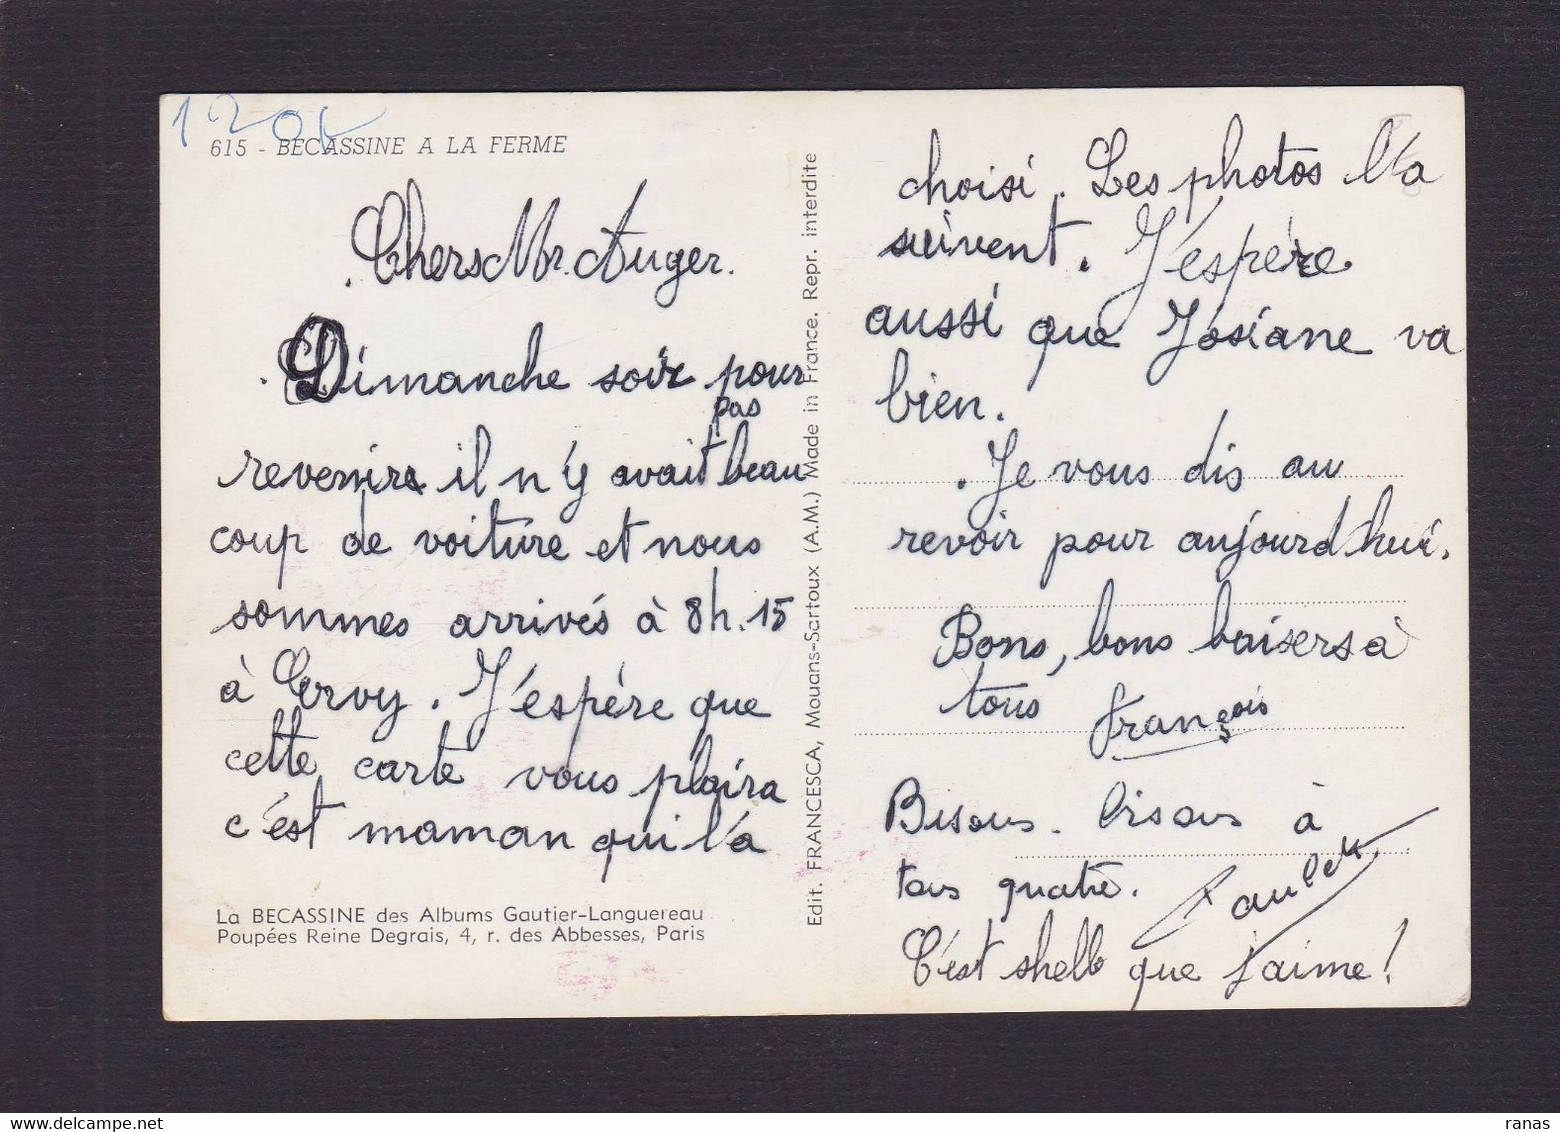 615 - BECASSINE A LA FERME
Chers Mr. Auger.
Dimanche soir pour
pas
revenir il n'y avait beau
coup de voiture et nous
sommes arrivés à 8h.15
à Cervy. J'espère que
cette carte vous plaira
c'est maman qui l'a
La BECASSINE des Albums Gautier-Languereau
Poupées Reine Degrais, 4, r. des Abbesses, Paris
Edit. FRANCESCA, Mouans-Sartoux (A.M.) Made in France. Repr. interdite
choisi. Les photos
suivent. J'espère
aussi que Josiane va
bien.
Je vous dis au
revoir pour aujourd'hui.
Bons, bons baisers à
tous François
Bisous. bisous à
tous quatre.
Paulett
C'est shell que j'aime!
ranas